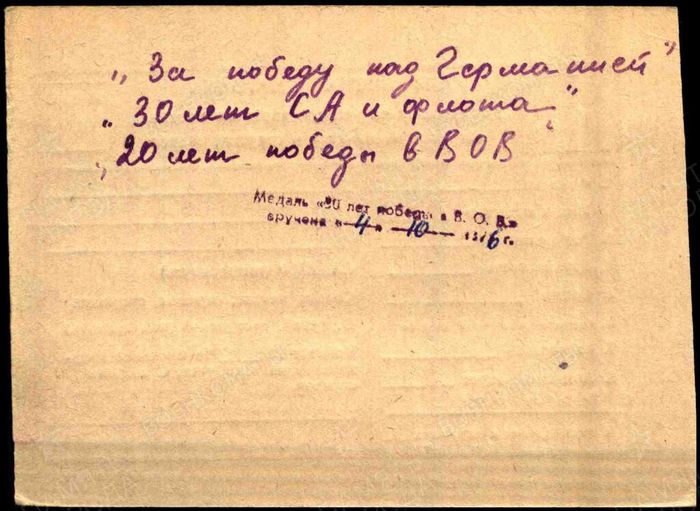 „За победу над Германией"
„30 лет СА и флота"
„20 лет победы в ВОВ"
Медаль «30 лет победы в В. О. В.»
вручена « 4 » 10 1976 г.